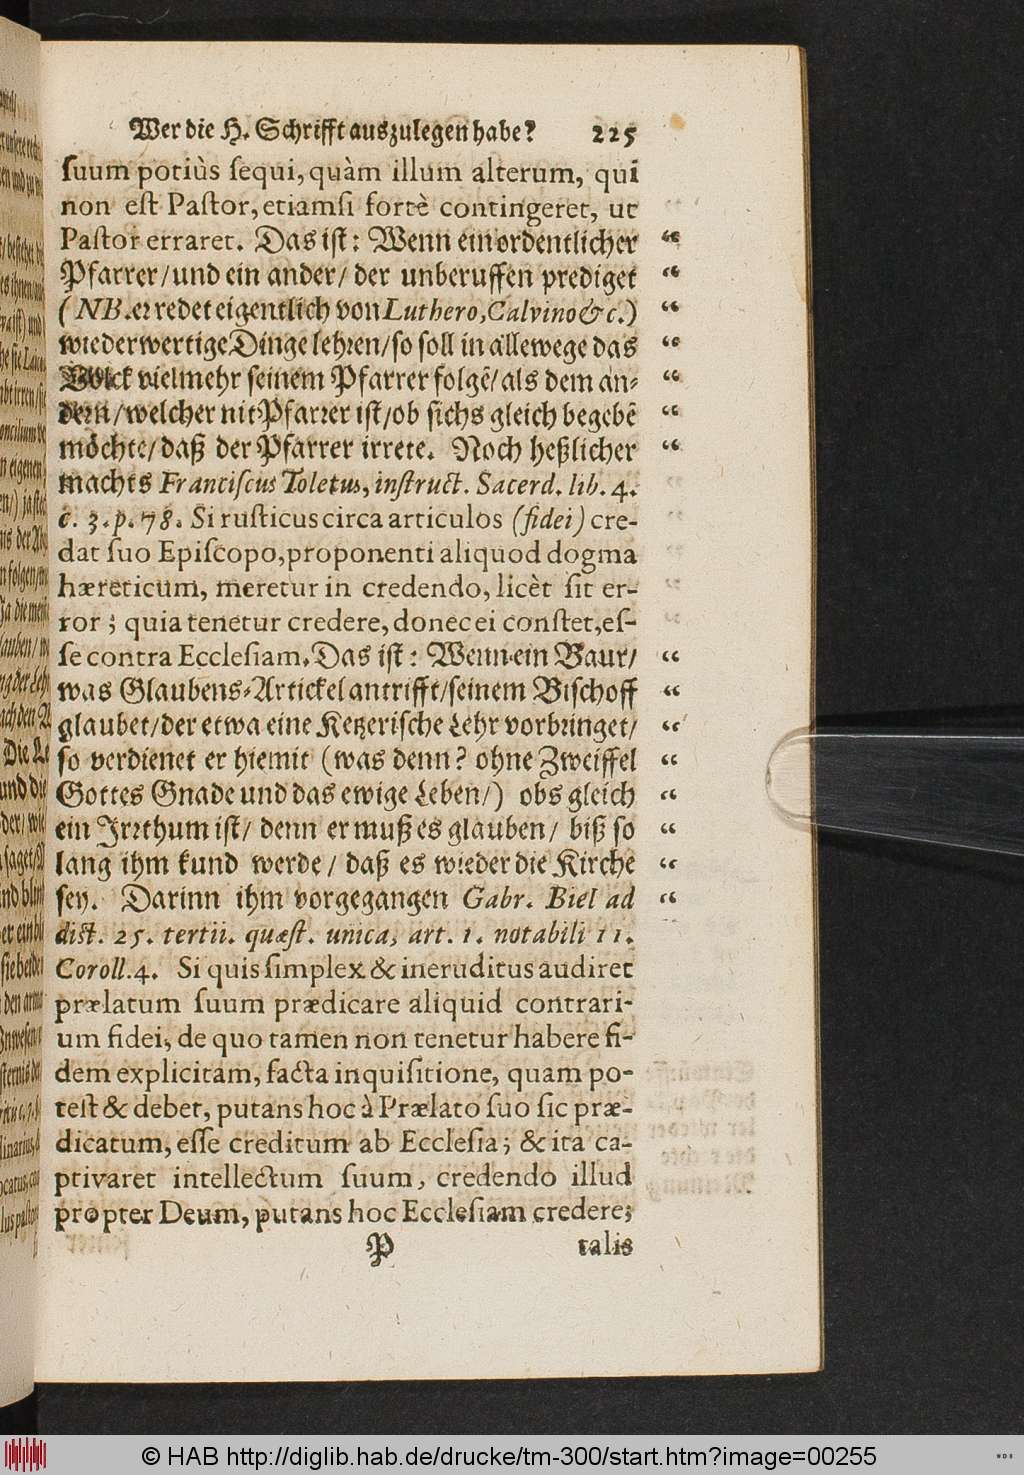 Wer die H. Schrifft auszulegen habe? 225
suum potiùs sequi, quàm illum alterum, qui
non est Pastor, etiamsi fortè contingeret, ut
Pastor erraret. Das ist: Wenn ein ordentlicher
Pfarrer/ und ein ander/ der unberuffen prediget
(NB. er redet eigentlich von Luthero, Calvino &c.)
wiederwertige Dinge lehren/ so soll in allewege das
Volck vielmehr seinem Pfarrer folgẽ/ als dem an-
dern/ welcher nit Pfarrer ist/ ob sichs gleich begebẽ
möchte/ daß der Pfarrer irrete. Noch heßlicher
machts Franciscus Toletus, instruct. Sacerd. lib. 4.
c. 3. p. 78. Si rusticus circa articulos (fidei) cre-
dat suo Episcopo, proponenti aliquod dogma
hæreticum, meretur in credendo, licèt sit er-
ror; quia tenetur credere, donec ei constet, es-
se contra Ecclesiam. Das ist: Wenn ein Baur/
was Glaubens-Artickel antrifft/ seinem Bischoff
glaubet/ der etwa eine Ketzerische Lehr vorbringet/
so verdienet er hiemit (was denn? ohne Zweiffel
Gottes Gnade und das ewige Leben/) obs gleich
ein Irrthum ist/ denn er muß es glauben/ biß so
lang ihm kund werde/ daß es wieder die Kirche
sey. Darinn ihm vorgegangen Gabr. Biel ad
dist. 25. tertii. quæst. unica, art. 1. notabili 11.
Coroll. 4. Si quis simplex & ineruditus audiret
prælatum suum prædicare aliquid contrari-
um fidei, de quo tamen non tenetur habere fi-
dem explicitam, facta inquisitione, quam po-
test & debet, putans hoc à Prælato suo sic præ-
dicatum, esse creditum ab Ecclesia; & ita ca-
ptivaret intellectum suum, credendo illud
propter Deum, putans hoc Ecclesiam credere;
P talis
© HAB http://diglib.hab.de/drucke/tm-300/start.htm?image=00255